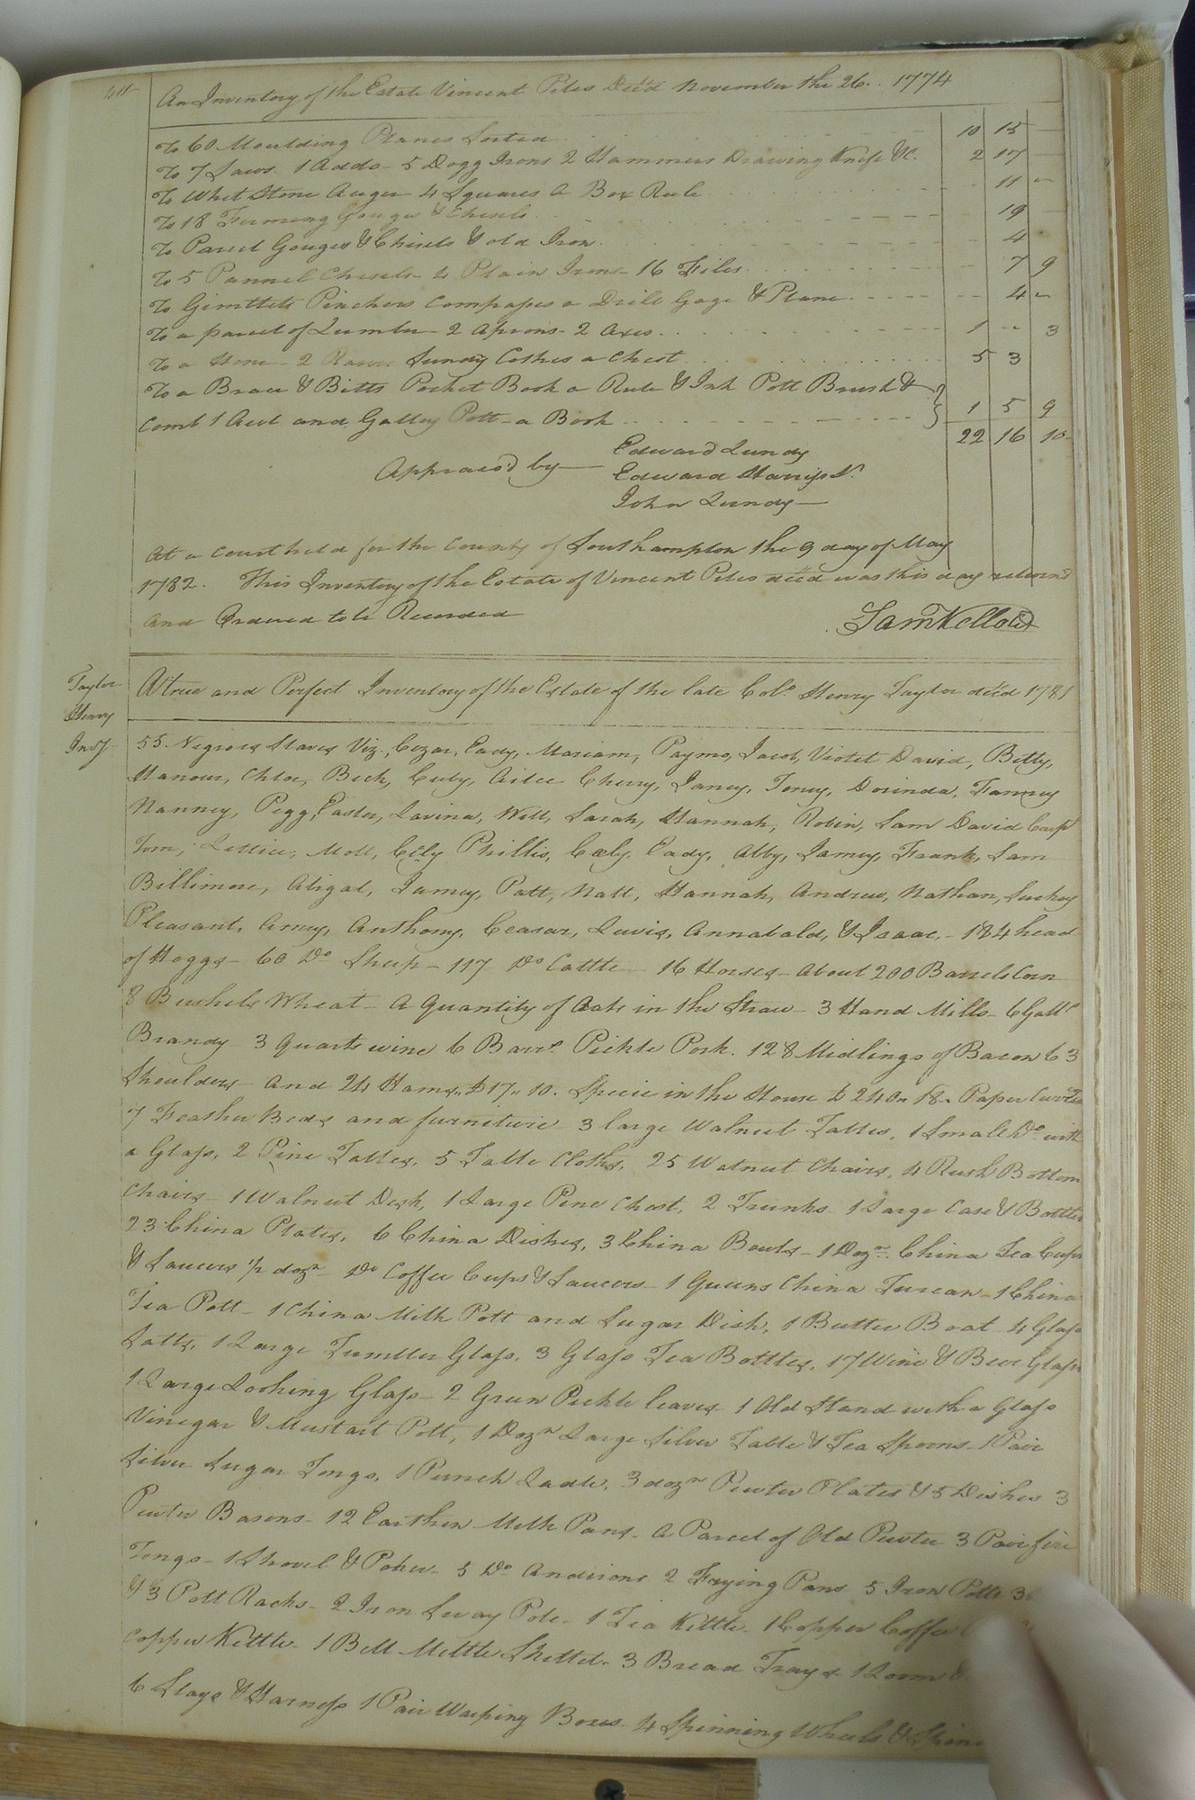 An Inventory of the Estate Vincent Piles Decd November the 26. 1774
To 60 Moulding Planes Sorted 10 15 —
To 7 Saws 1 Adds 5 Dogg Irons 2 Hammers Drawing Knife &C. 2 17 —
To Whet Stone Auger 4 Squares a Box Rule 11 —
To 18 Gouges & Chisels 19 —
To Parcel Gouges & Chisels & old Iron 4
To 5 Pannel Chisels 4 Plain Irons 16 Files 7 9
To Gimblets Pinchers Compases a Drile Gage & Plane 4 —
To a parcel of Lumber 2 Aprons 2 Axes 1 - 3
To a 2 Sundry Cothes a Chest 5 3
To a Brace & Bitts Pocket Book a Rule & Ink Pott Brush &
Comb 1 Awl and Galley Pott a Book 1 5 9
22 16 10
Appraisd by Edward Lundy
Edward Harriss Sr.
John Lundy
At a Court held for the County of Southampton the 9 day of May
1782. This Inventory of the Estate of Vincent Piles decd was this day returnd
and Ordered to be Recorded
Sam Kello
Taylor
Henry
Invy
A true and Perfect Inventory of the Estate of the late Colo. Henry Taylor decd 1781
55 Negroes Slaves Viz., Cezar, Eady, Mariam, Jacob, Violet David, Betty,
Hanour, Chloe, Beck, Cuby, Ailce Cherry, Janey, Toney, Dorinda, Fanney
Nanney, Pegg, Easter, Lavina, Will, Sarah, Hannah, Robin, Sam David Carpr
Tom, Lettice, Moll, Phillis, Eady, Abby, Jamey, Frank, Sam
Billimore, Abigal, Jamey, Patt, Natt, Hannah, Andrew, Nathan, Suckey
Pleasant, Amey, Anthony, Ceasar, Lewis, Annabald, & Isaac, - 184 head
of Hoggs - 60 Do Sheep - 117 Do Cattle - 16 Horses - About 200 Barrels Corn
8 Bushels Wheat - A Quantity of Oats in the Straw - 3 Hand Mills - 6 Galls
Brandy 3 Quarts wine 6 Barrs. Pickle Pork. 128 Midlings of Bacon 63
Shoulders and 24 Hams, £17.. 10. Specie in the House £ 240.. 18.. Paper
7 Feather Beds and furniture 3 large Walnut Tables, 1 Small Do with
a Glass, 2 Pine Tables, 5 Table Cloths, 25 Walnut Chairs, 4 Rush Bottom
Chairs - 1 Walnut Desk, 1 Large Pine Chest, 2 Trunks 1 Large Case & Bottles
23 China Plates, 6 China Dishes, 3 China Bowls - 1 Dozn. China Tea Cups
& Saucers 1/2 dozn - Do Coffee Cups & Saucers - 1 Queens China Turean - 1 China
Tea Pott - 1 China Milk Pott and Sugar Dish, 1 Butter Boat 4 Glass
Salts, 1 Large Tumbler Glass, 3 Glass Tea Bottles, 17 Wine & Beer Glasses
1 Large Looking Glass - 2 Green Pickle leaves 1 Old Stand with a Glass
Vinegar & Mustart Pott, 1 Dozn Large Silver Table & Tea Spoons - 1 Pair
Silver Sugar Tongs, 1 Punch Ladle, 3 dozn Pewter Plates & 5 Dishes 3
Pewter Basons - 12 Earthen Milk Pans - A Parcel of Old Pewter 3 Pair fire
Tongs - 1 Shovel & Poker - 5 Do Andirons 2 Frying Pans 5 Iron Potts 3
& 3 Pott Racks - 2 Iron Sway Pole - 1 Tea Kettle - 1 Copper Coffee
Copper Kettle - 1 Bell Mettle Skellet - 3 Bread Trays 1 Loom &
6 Slays & Harness 1 Pair Warping Boxes 4 Spinning Wheels &